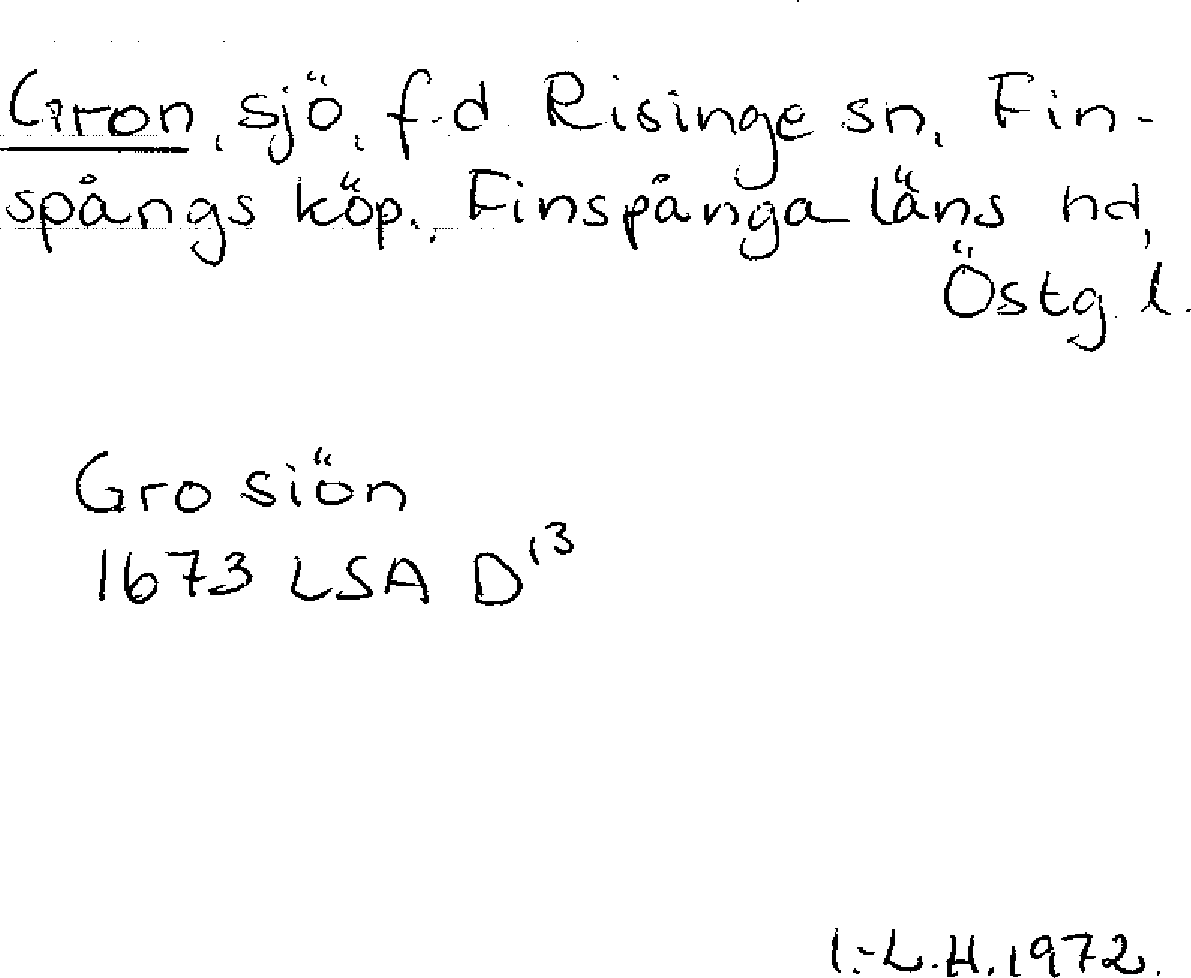 Gron, sjö, f.d. Risinge sn, Fin-
spångs köp., Finspånga läns hd,
Östg. l.
Gro siön
1673 LSA D¹³
I.-L.H. 1972.